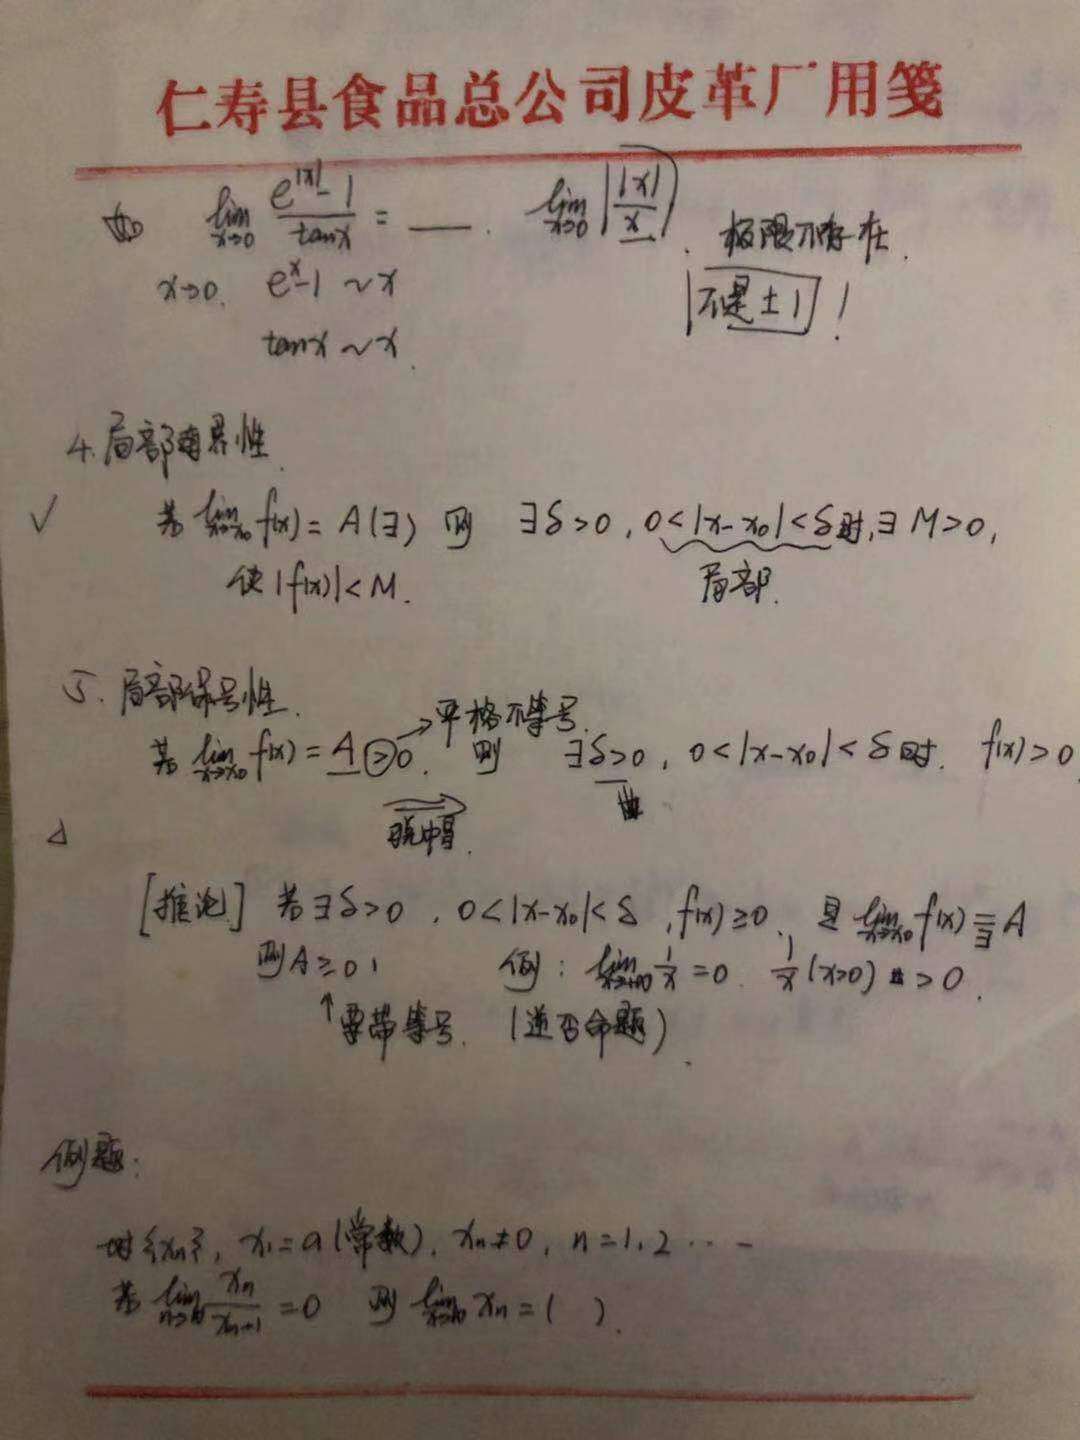 仁寿县食品总公司皮革厂用笺
如 lim x→0 (e^|x| - 1)/tanx = ___ . lim x→0 |x|/x . 极限不存在.
x→0. e^x-1 ~ x 不是±1 !
tanx ~ x.
4. 局部有界性.
√ 若 lim x→x₀ f(x) = A (∃) 则 ∃δ>0, 0<|x-x₀|<δ时, ∃ M>0,
使 |f(x)|<M. 局部.
5. 局部保号性.
→ 严格不等号.
若 lim x→x₀ f(x) = A > 0. 则 ∃δ>0, 0<|x-x₀|<δ时. f(x)>0
脱帽.
△
[推论] 若∃δ>0, 0<|x-x₀|<δ, f(x)≥0. 且 lim x→x₀ f(x) = ∃ A
则A≥0! 例: lim x→+∞ 1/x = 0. 1/x (x>0) >0.
↑要带等号. (逆否命题).
例题:
对{xn}, x₁=a(常数). xn≠0, n=1,2···
若 lim n→∞ xn/xn+1 = 0 则 lim x→∞ xn = ( ).